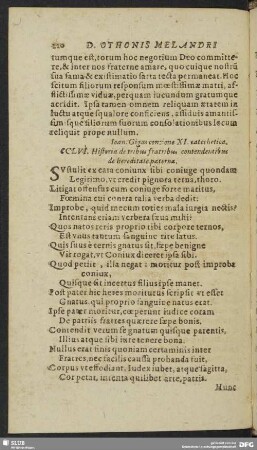 220 D. OTHONIS MELANDRI
tumque est, totum hoc negotium Deo committe-
re, & inter nos fraterne amare, quo cuique nostrû
sua fama & existimatio sarta tecta permaneat. Hoc
scitum filiorum responsum mœstissimæ matri, af-
flictissimæ viduæ, perquam iucundum gratumque
accidit. Ipsa tamen omnem reliquam ætatem in
luctu atque squalore conficiens, assiduis amantis-
simisque filiorum suorum consolationibus locum
reliquit prope nullum.
Ioan. Gigas concione XI. catechetica,
CCLVI. Historia de tribus fratribus contendentibus
de hereditate paterna.
SVstulit ex cara coniunx sibi coniuge quondam
Legitimo, vt credit pignora terna, thoro.
Litigat offensus cum coniuge forte maritus,
Fœmina cui contra talia verba dedit:
Improbe, quid mecum toties mala iurgia nectis
Intentans etiam verbera sæua mihi?
Quos natos teris proprio tibi corpore ternos,
Est vnus tantum sanguine rite satus.
Quis suus è ternis gnatus sit, sæpe benigne
Vir rogat, vt Coniux dicere ipsa sibi.
Quod petiit, illa negat: moritur post improba
coniux,
Quisque sit incertus filius ipse manet.
Post pater hic heres morituros scripsit vt esset
Gnatus, qui proprio sanguine natus erat.
Ipse pater moritur, cœperunt iudice coram
De patriis fratres quærere sæpe bonis,
Contendit verum se gnatum quisque parentis,
Illius atque sibi iure tenere bona.
Nullus erat finis quoniam certaminis inter
Fratres, nec facilis caussa probanda fuit,
Corpus vt effodiant, Iudex iubet, atque sagitta,
Cor petat, intenta quilibet arte, patris.
Nunc
SLUB
DFG